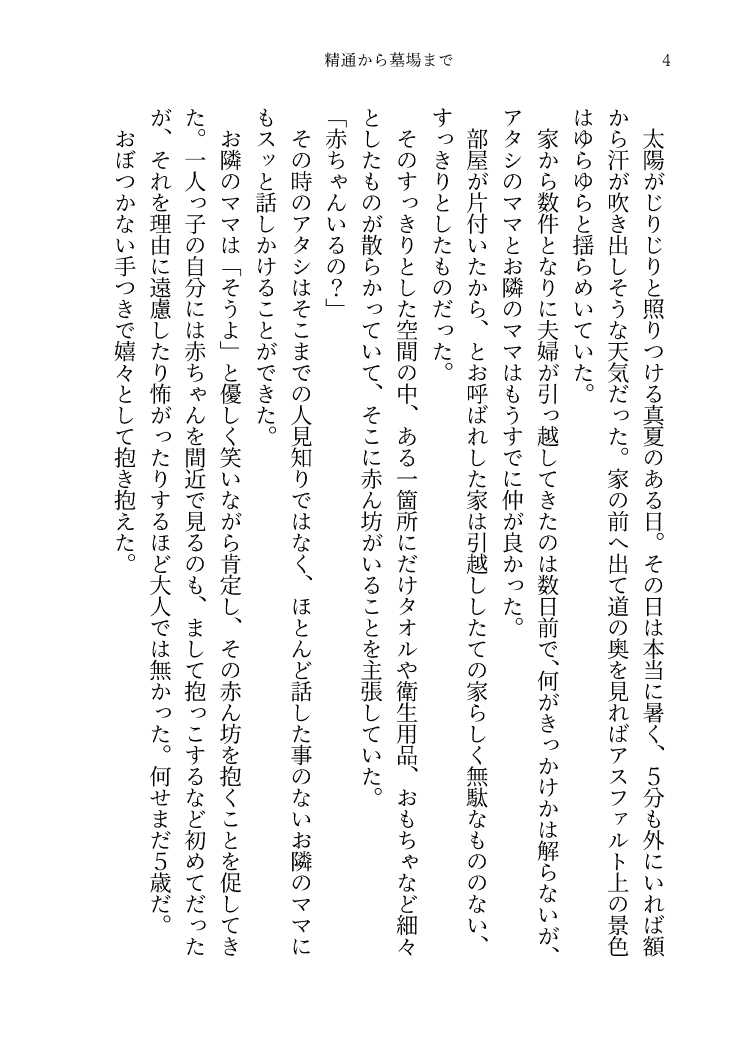 精通から墓場まで
4
太陽がじりじりと照りつける真夏のある日。その日は本当に暑く、5分も外にいれば額
から汗が吹き出しそうな天気だった。家の前へ出て道の奥を見ればアスファルト上の景色
はゆらゆらと揺らめいていた。
家から数件となりに夫婦が引っ越してきたのは数日前で、何がきっかけかは解らないが、
アタシのママとお隣のママはもうすでに仲が良かった。
部屋が片付いたから、とお呼ばれした家は引越ししたての家らしく無駄なもののない、
すっきりとしたものだった。
そのすっきりとした空間の中、ある一箇所にだけタオルや衛生用品、おもちゃなど細々
としたものが散らかっていて、そこに赤ん坊がいることを主張していた。
「赤ちゃんいるの?」
その時のアタシはそこまでの人見知りではなく、ほとんど話した事のないお隣のママに
もスッと話しかけることができた。
お隣のママは「そうよ」と優しく笑いながら肯定し、その赤ん坊を抱くことを促してき
た。一人っ子の自分には赤ちゃんを間近で見るのも、まして抱っこするなど初めてだった
が、それを理由に遠慮したり怖がったりするほど大人では無かった。何せまだ5歳だ。
おぼつかない手つきで嬉々として抱き抱えた。